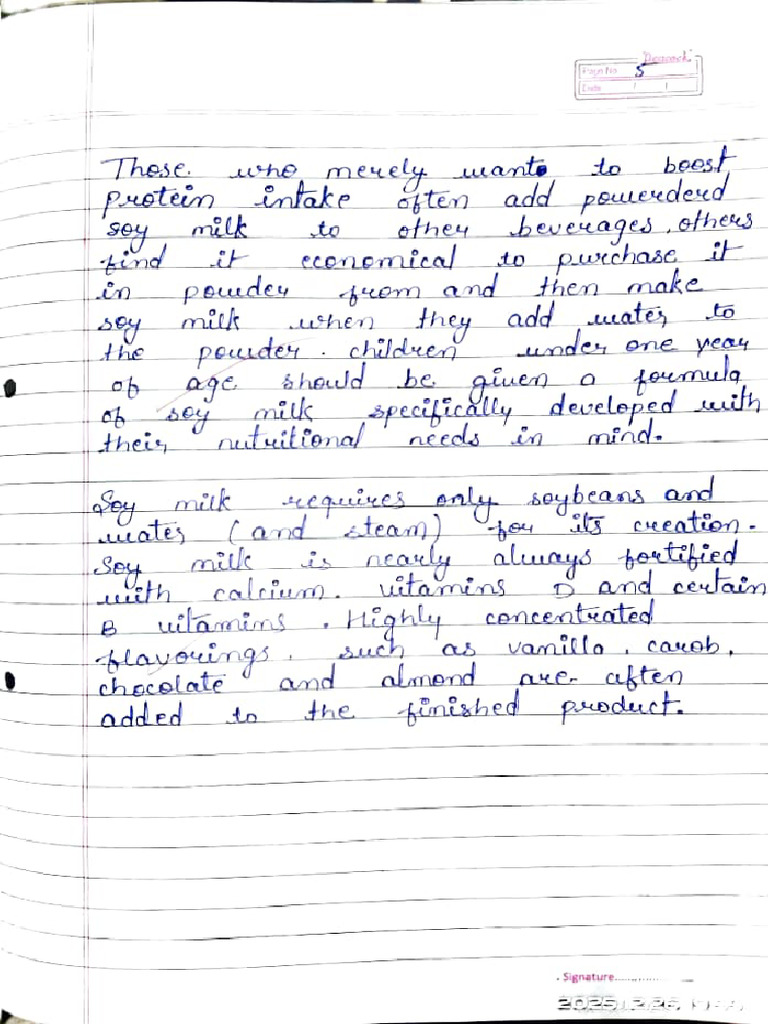 Peacock
Page No. 5
Date / /
Those who merely wants to boost
protein intake often add powerderd
soy milk to other beverages, others
find it economical to purchase it
in powder from and then make
soy milk when they add water to
the powder. children under one year
of age should be given a formula
of soy milk specifically developed with
their nutritional needs in mind.
Soy milk requires only soybeans and
water (and steam) for its creation.
Soy milk is nearly always fortified
with calcium. vitamins D and certain
B vitamins. Highly concentrated
flavourings, such as vanilla, carob,
chocolate and almond are often
added to the finished product.
Signature